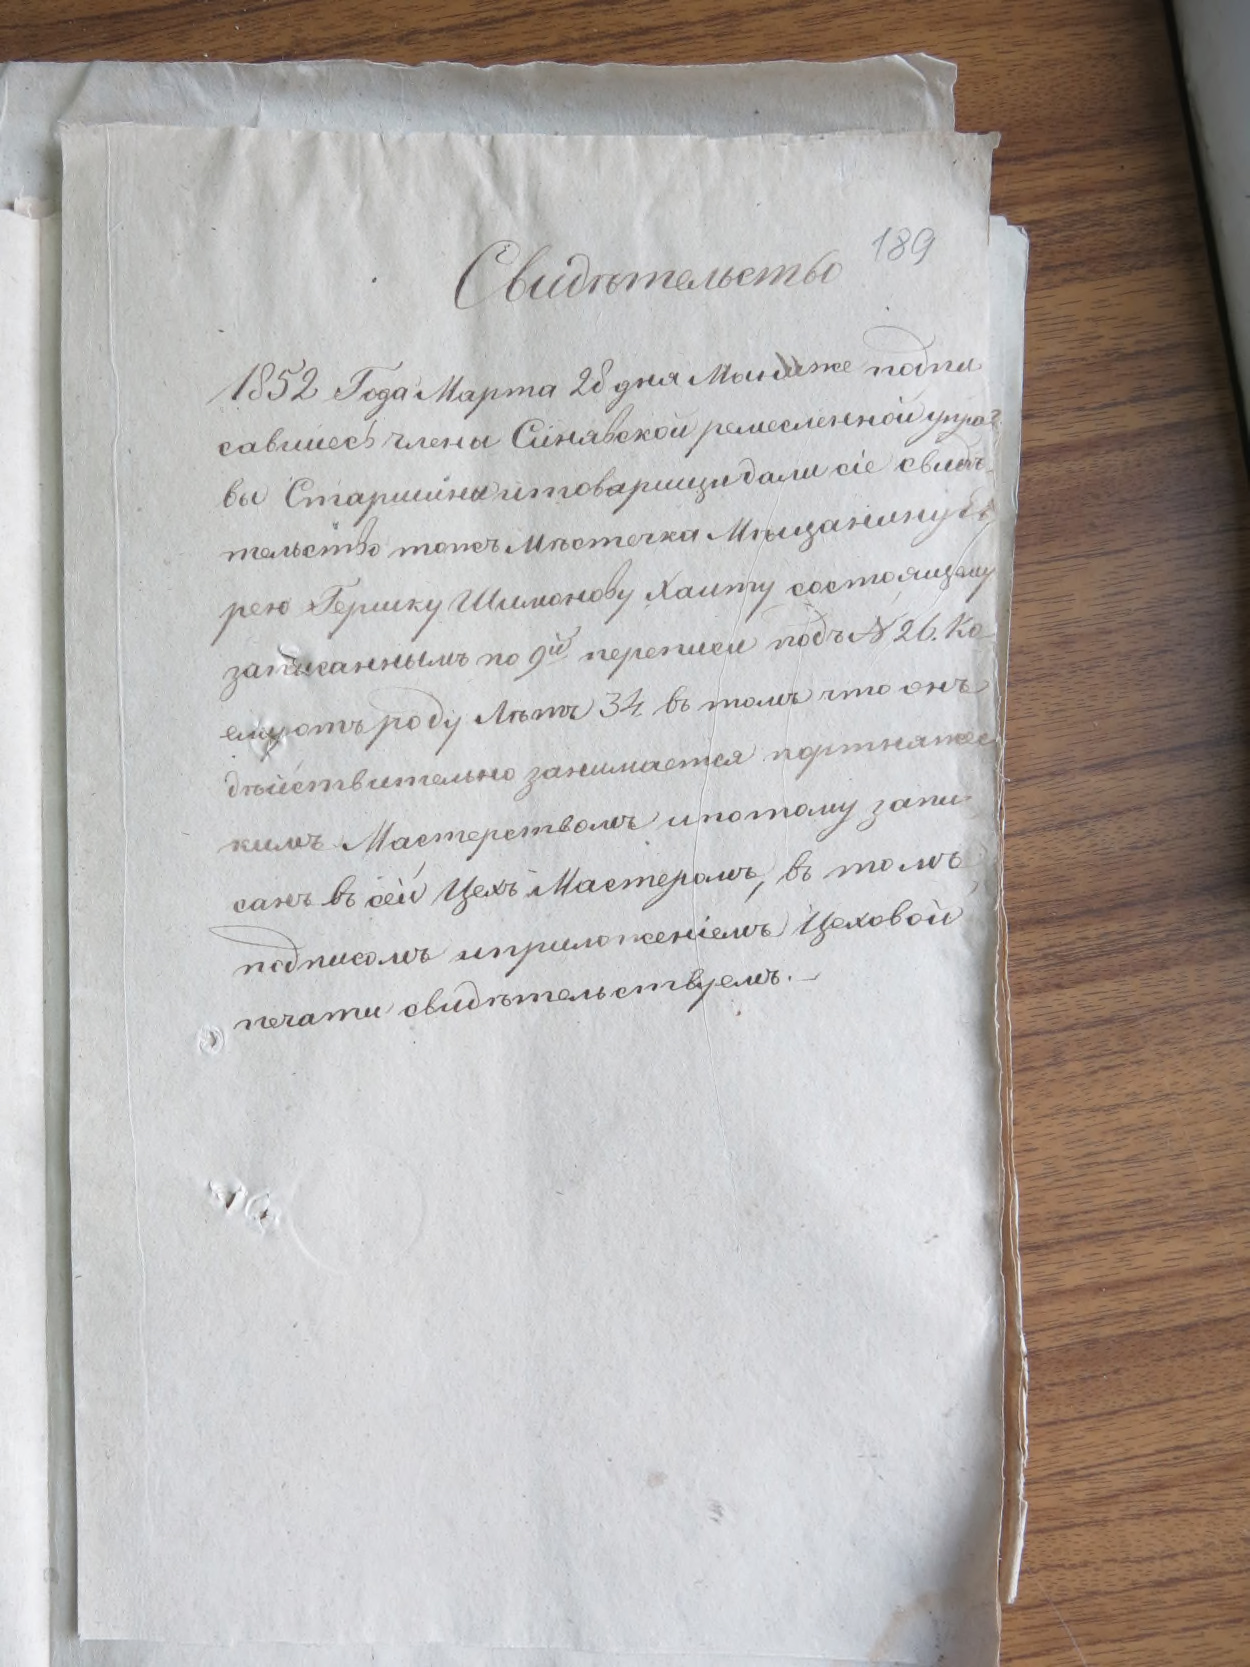 189
Свидѣтельство
1852 Года Марта 28 дня Мы ниже подпи
савшіесѣ члены Сѣнявской ремесленной упра-
вы Старшины итоварищи дали сіе свидѣ-
тельство тогожъ Мѣстечка Мѣщанину Ев
рею Гершку Шимонову Хаиту состоящему
записаннымъ по 9й переписи подъ № 26. Ко
ему отъ роду Лѣтъ 34 въ томъ что онъ
дѣйствительно занимается портняжес
кимъ Мастерствомъ ипотому запи
санъ въ сей Цехъ Мастеромъ, въ томъ
подписомъ иприложеніемъ Цеховой
печати свидѣтельствуемъ.